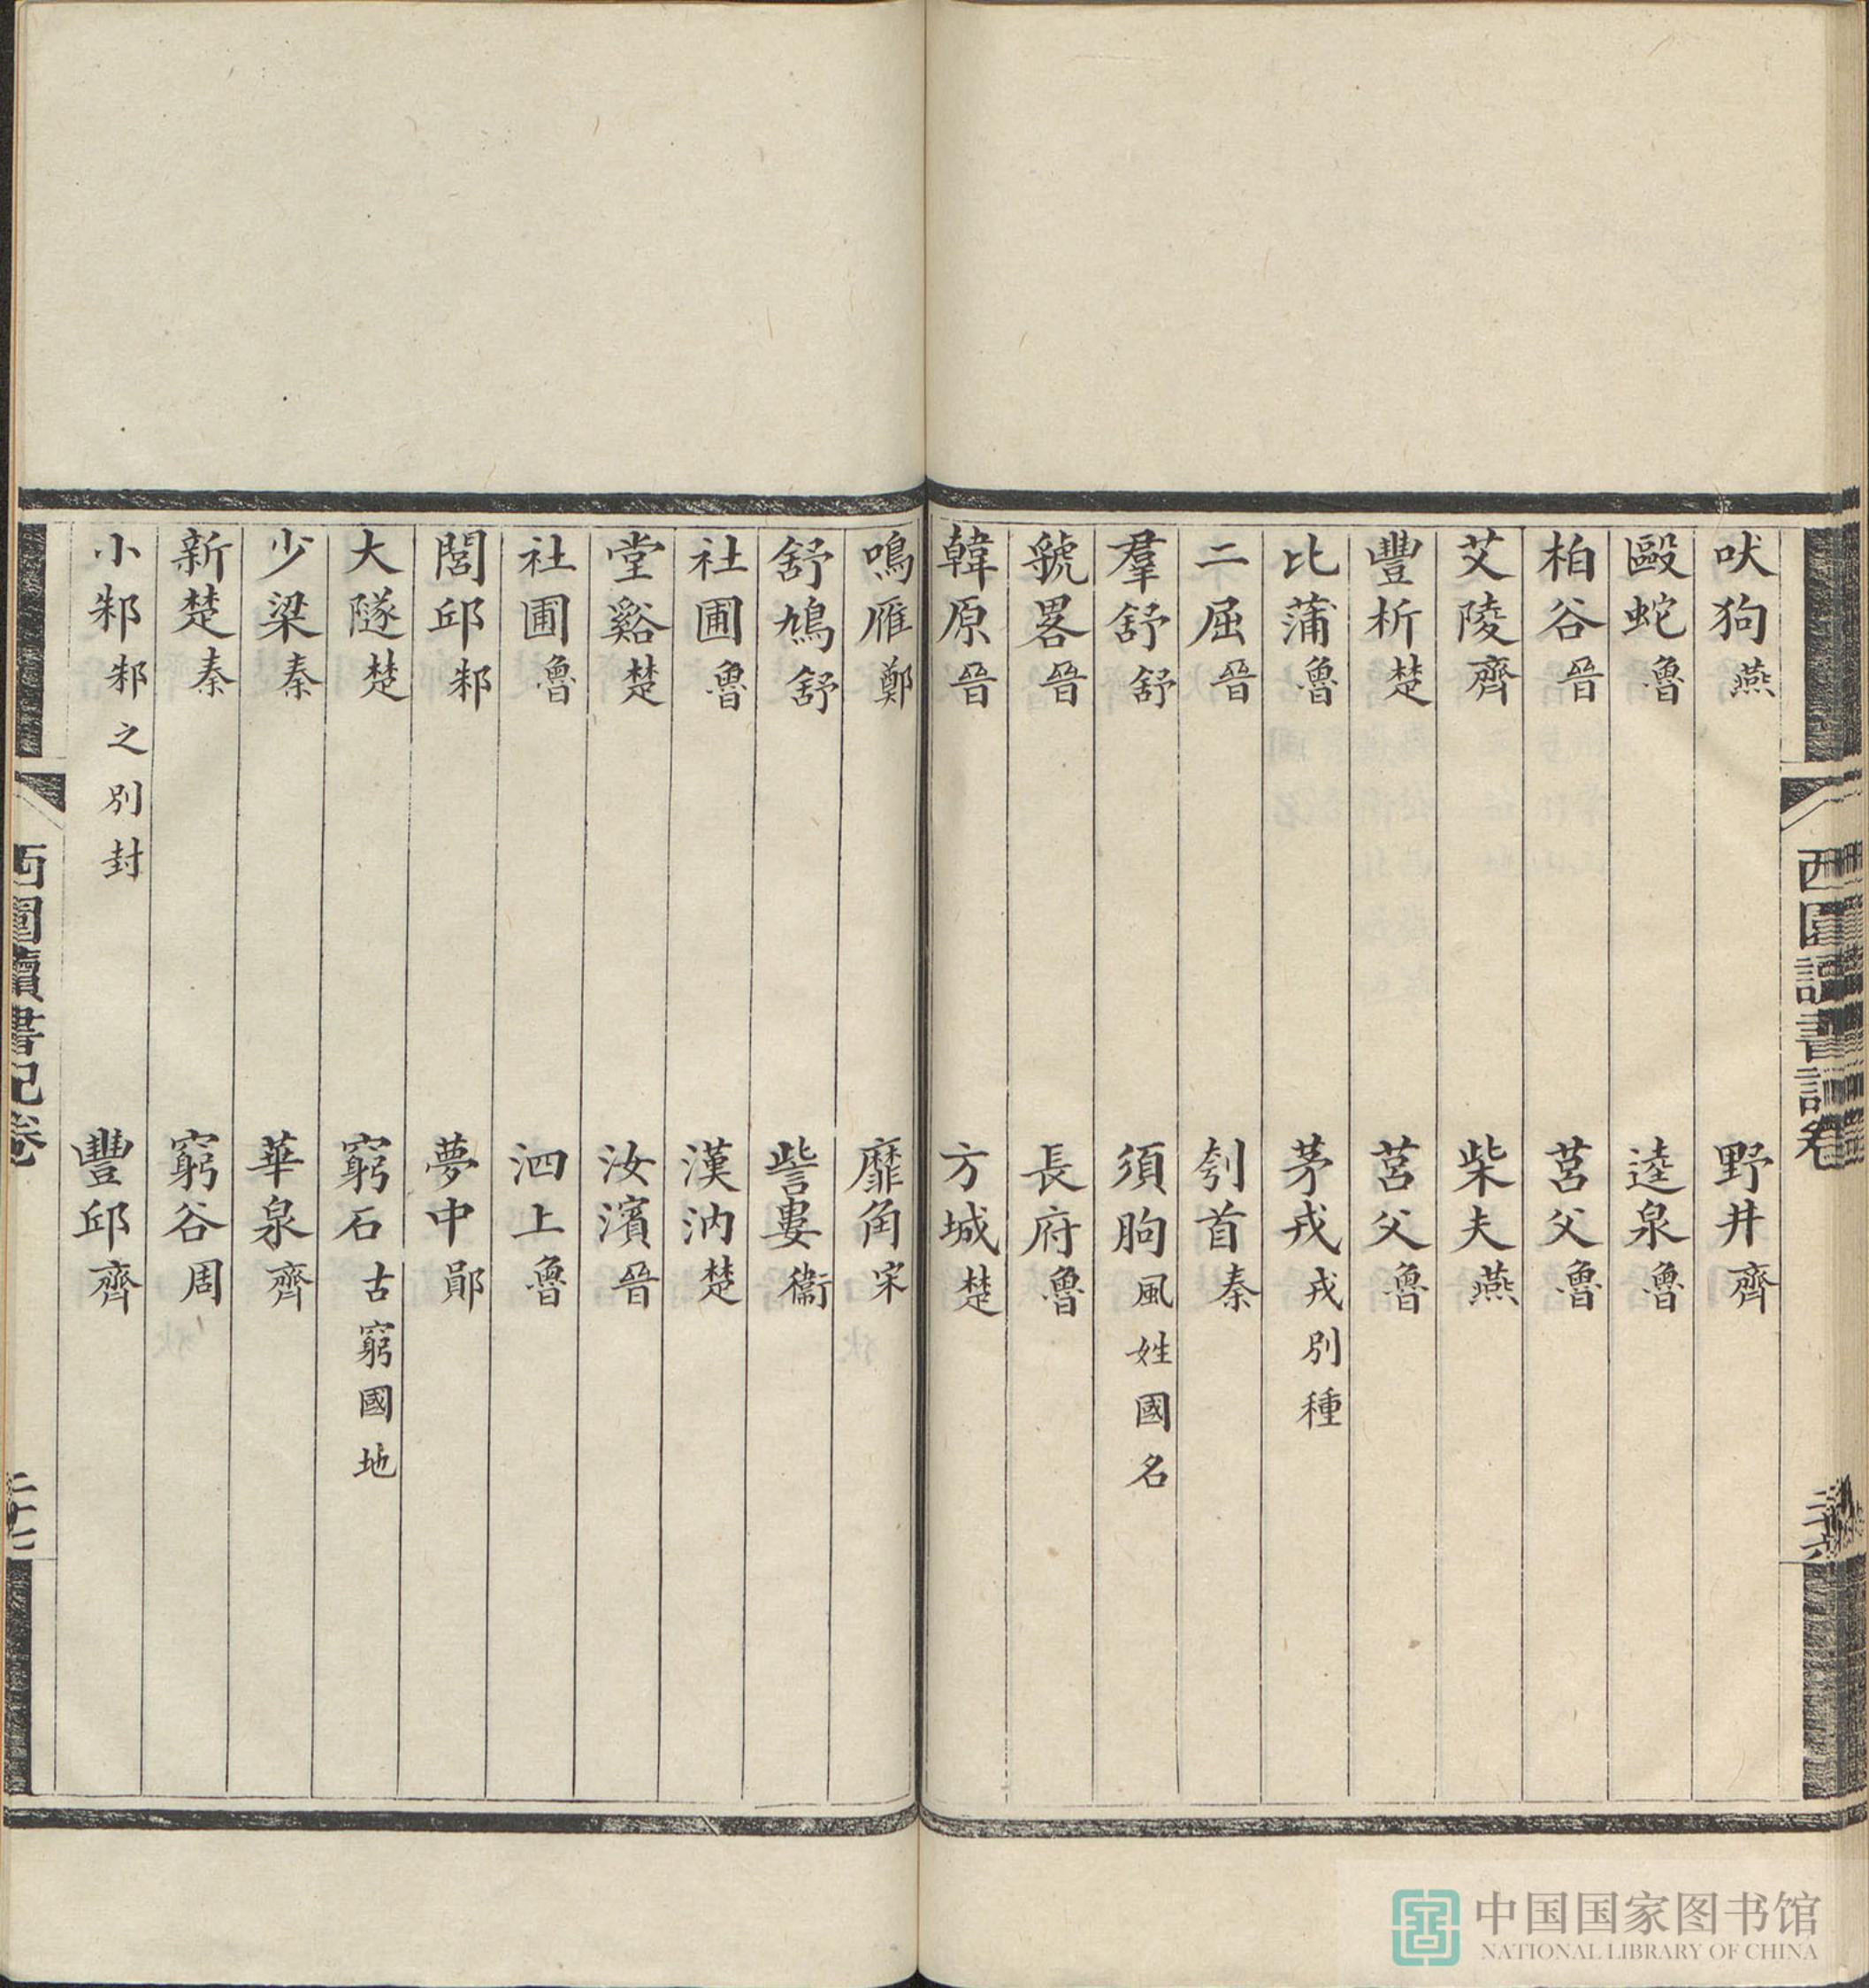 西園讀書記卷
二十六
吠狗燕 野井齊
毆蛇魯 逵泉魯
柏谷晉 莒父魯
艾陵齊 柴夫燕
豐析楚 莒父魯
比蒲魯 茅戎戎別種
二屈晉 刳首秦
羣舒舒 須朐風姓國名
虢畧晉 長府魯
韓原晉 方城楚
鳴雁鄭 靡角宋
舒鳩舒 訾婁衞
社圃魯 漢汭楚
堂谿楚 汝濱晉
社圃魯 泗上魯
閭邱邾 夢中鄖
大隧楚 窮石古窮國地
少梁秦 華泉齊
新楚秦 窮谷周
小邾邾之別封 豐邱齊
西園讀書記卷
二十七
中国国家图书馆
NATIONAL LIBRARY OF CHINA